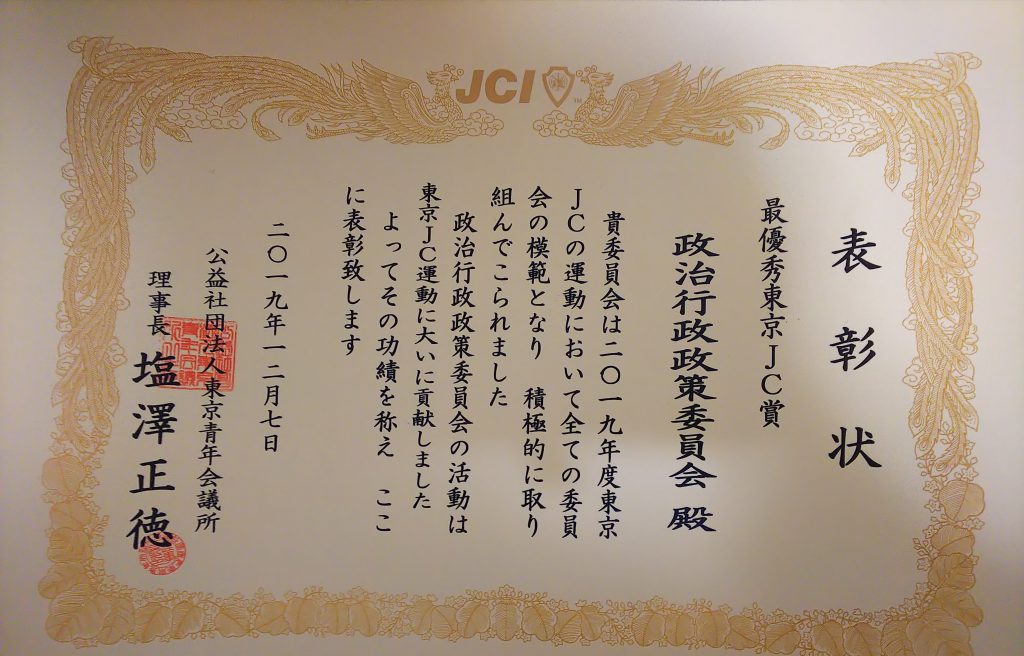 JCI
表彰状
最優秀東京JC賞
政治行政政策委員会 殿
貴委員会は二〇一九年度東京
JCの運動において全ての委員
会の模範となり 積極的に取り
組んでこられました
政治行政政策委員会の活動は
東京JC運動に大いに貢献しました
よってその功績を称え ここ
に表彰致します
二〇一九年一二月七日
公益社団法人東京青年会議所
理事長 塩澤正徳